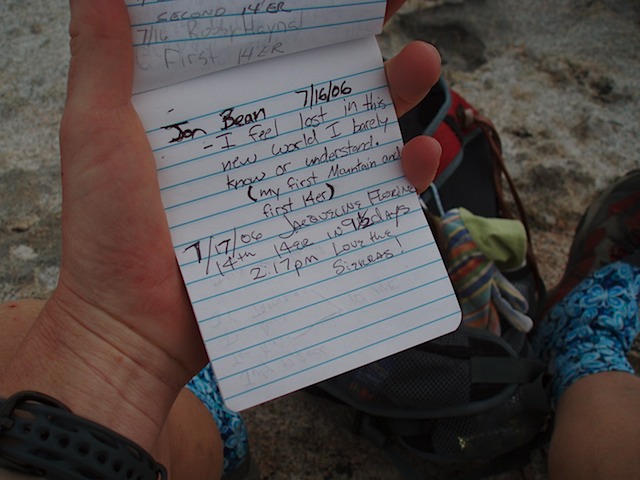 SECOND 14'ER
7/16 Bobby Haynal
First 14ER
Jon Bean 7/16/06
- I feel lost in this
new world I barely
know or understand.
(my first Mountain and
first 14er)
7/17/06 JACQUELINE
14th 14ER in 9½ days
2:17pm Love the
SIERRAS!